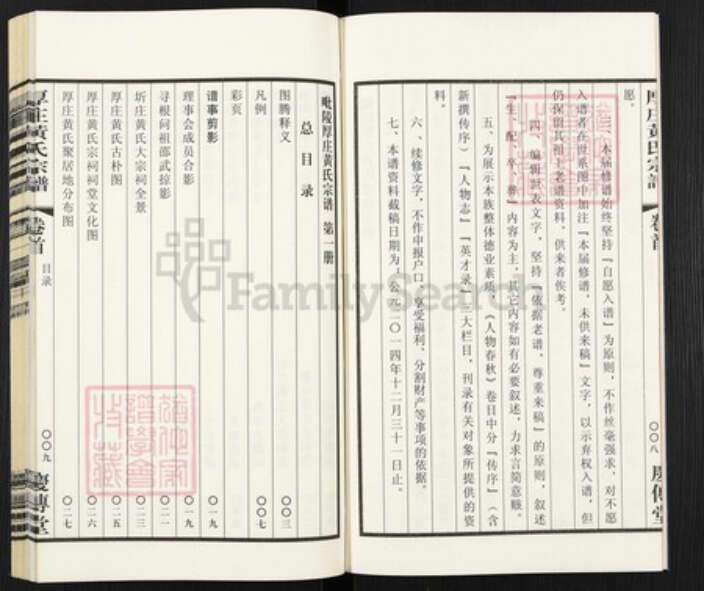 厚庄黄氏宗谱 卷首 〇〇八 庆傅堂
愿。
三、本届修谱始终坚持『自愿入谱』为原则，不作丝毫强求，对不愿
入谱者在世系图中加注『本届修谱，未供来稿』文字，以示弃权入谱，但
仍保留其祖上老谱资料，供来者俟考。
四、编辑世表文字，坚持『依据老谱，尊重来稿』的原则，叙述
『生、配、卒、葬』内容为主，其它内容如有必要叙述，力求言简意赅。
五、为展示本族整体德业素项，《人物春秋》卷目中分『传序』（含
新撰传序）『人物志』『英才录』三大栏目，刊录有关对象所提供的资
料。
六、续修文字，不作申报户口、享受福利、分割财产等事项的依据。
七、本谱资料截稿日期为：公元二〇一四年十二月三十一日止。
毗陵厚庄黄氏宗谱 第一册
总目录
图腾释义 〇〇三
凡例 〇〇七
彩页
谱事剪影 〇一九
理事会成员合影 〇一九
寻根问祖邵武掠影 〇二一
圻庄黄氏大宗祠全景 〇二三
厚庄黄氏古朴图 〇二五
厚庄黄氏宗祠祠堂文化图 〇二六
厚庄黄氏聚居地分布图 〇二七
厚庄黄氏宗谱 卷首 目录 〇〇九 庆傅堂
FamilySearch